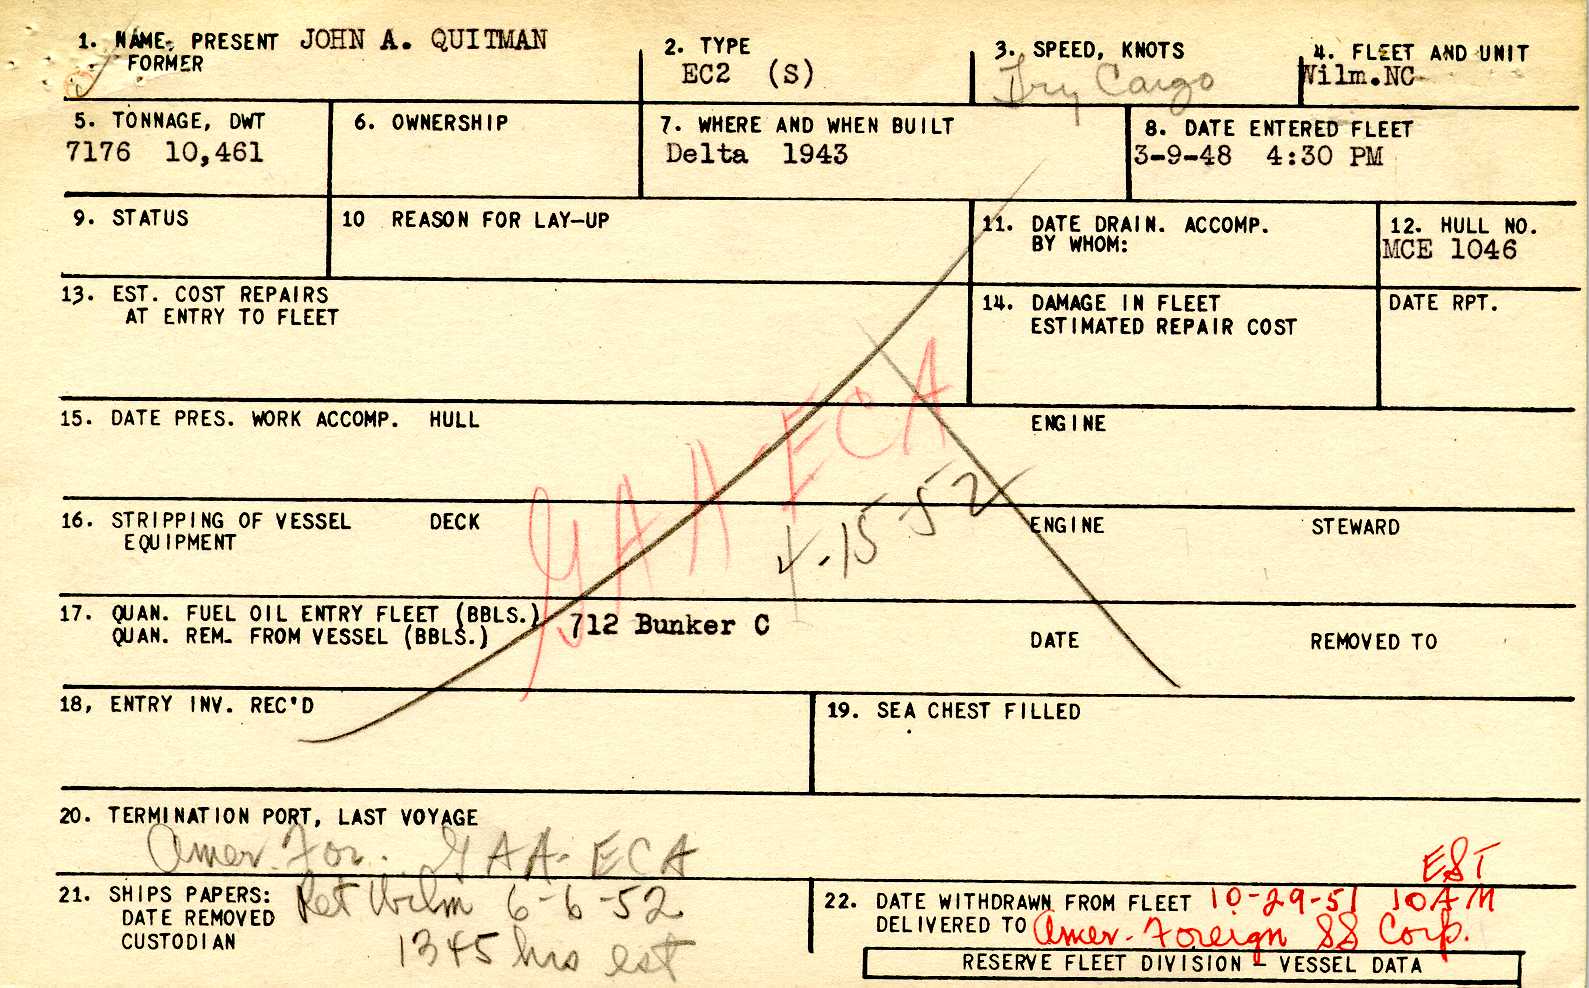 1. NAME, PRESENT JOHN A. QUITMAN
FORMER
2. TYPE
EC2 (S)
3. SPEED, KNOTS
Dry Cargo
4. FLEET AND UNIT
Wilm.NC
5. TONNAGE, DWT
7176 10,461
6. OWNERSHIP
7. WHERE AND WHEN BUILT
Delta 1943
8. DATE ENTERED FLEET
3-9-48 4:30 PM
9. STATUS
10 REASON FOR LAY-UP
11. DATE DRAIN. ACCOMP.
BY WHOM:
12. HULL NO.
MCE 1046
13. EST. COST REPAIRS
AT ENTRY TO FLEET
14. DAMAGE IN FLEET
ESTIMATED REPAIR COST
DATE RPT.
15. DATE PRES. WORK ACCOMP. HULL
ENGINE
GAA-ECA
4-15-52
16. STRIPPING OF VESSEL DECK
EQUIPMENT
ENGINE
STEWARD
17. QUAN. FUEL OIL ENTRY FLEET (BBLS.) 712 Bunker C
QUAN. REM. FROM VESSEL (BBLS.)
DATE
REMOVED TO
18, ENTRY INV. REC'D
19. SEA CHEST FILLED
20. TERMINATION PORT, LAST VOYAGE
Amer. For. GAA-ECA
21. SHIPS PAPERS: Ret Wilm 6-6-52
DATE REMOVED
CUSTODIAN 1345 hrs est
EST
22. DATE WITHDRAWN FROM FLEET 10-29-51 10AM
DELIVERED TO Amer-Foreign SS Corp.
RESERVE FLEET DIVISION - VESSEL DATA